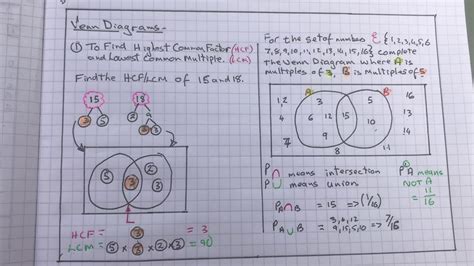 Venn Diagrams:-
① To Find Highest Common Factor (HCF)
and Lowest Common Multiple. (LCM)
Find the HCF/LCM of 15 and 18.
15 18
③ ⑤ ② 9
③ ③
⑤ ③ ② ③
HCF = ③ = 3
LCM = ⑤ × ③ × ② × ③ = 90
For the set of numbers ξ {1,2,3,4,5,6
7,8,9,10,11,12,13,14,15,16} complete
the Venn Diagram where A is
multiples of 3, B is multiples of 5
A B
1,2 3 5 16
4 6 12 15 10 13
7 9 14
8 11
P ∩ means intersection
P ∪ means union
P A' means
NOT A
11/16
P A∩B = 15 => (1/16)
P A∪B = 3,6,12 9,15,5,10 => 7/16